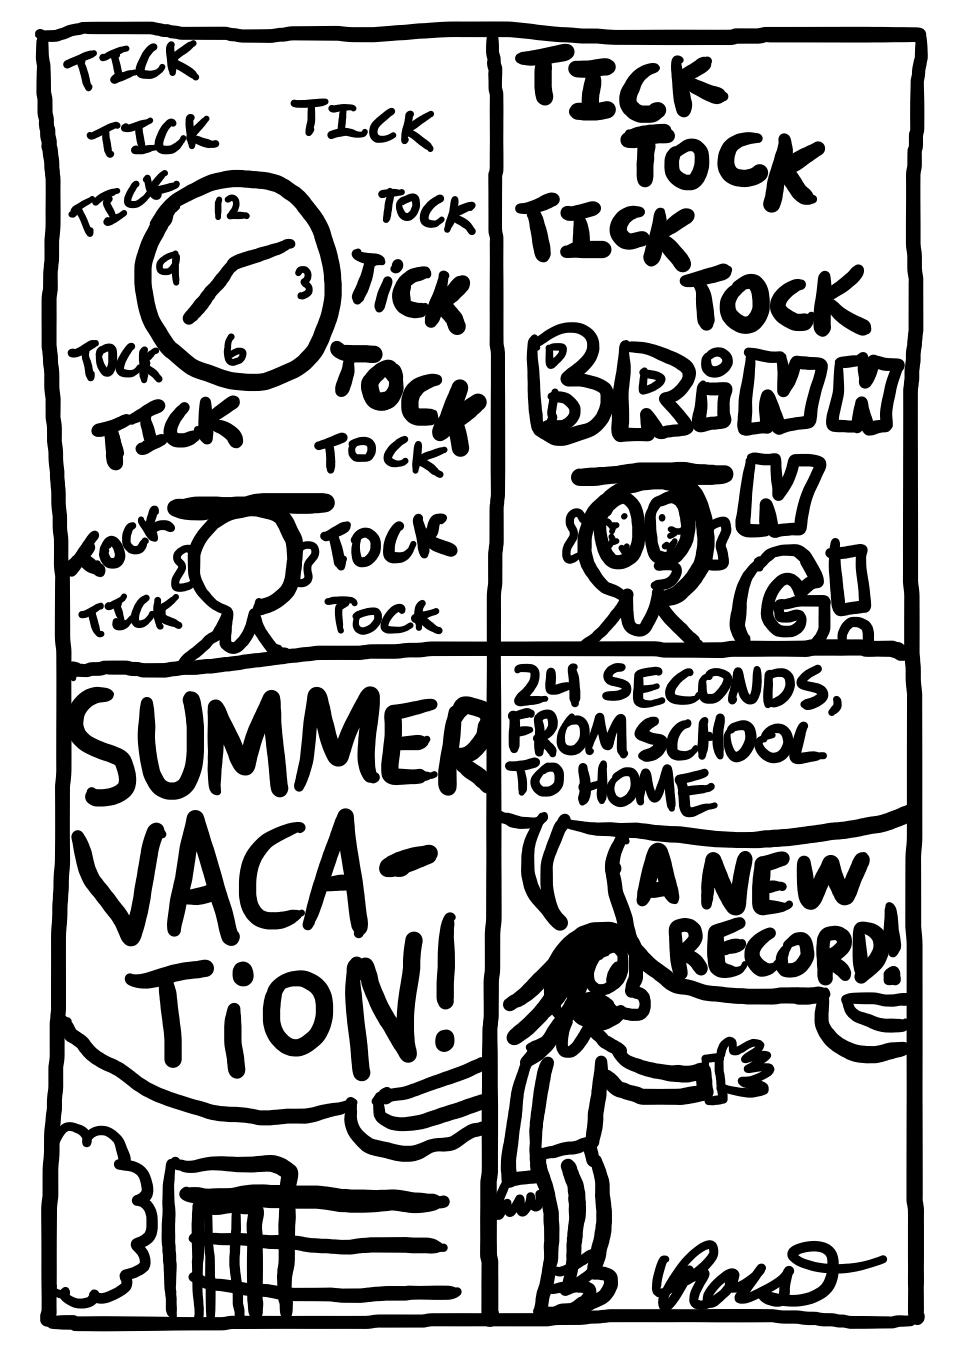 TICK
TICK
TICK
TICK
TOCK
12
9
3
6
TiCK
TOCK
TOCK
TICK
TOCK
TOCK
TOCK
TICK
TOCK
TICK
TOCK
TICK
TOCK
BRiNN
N
G!
SUMMER
VACA-
TiON!
24 SECONDS,
FROM SCHOOL
TO HOME
A NEW
RECORD!
Ross